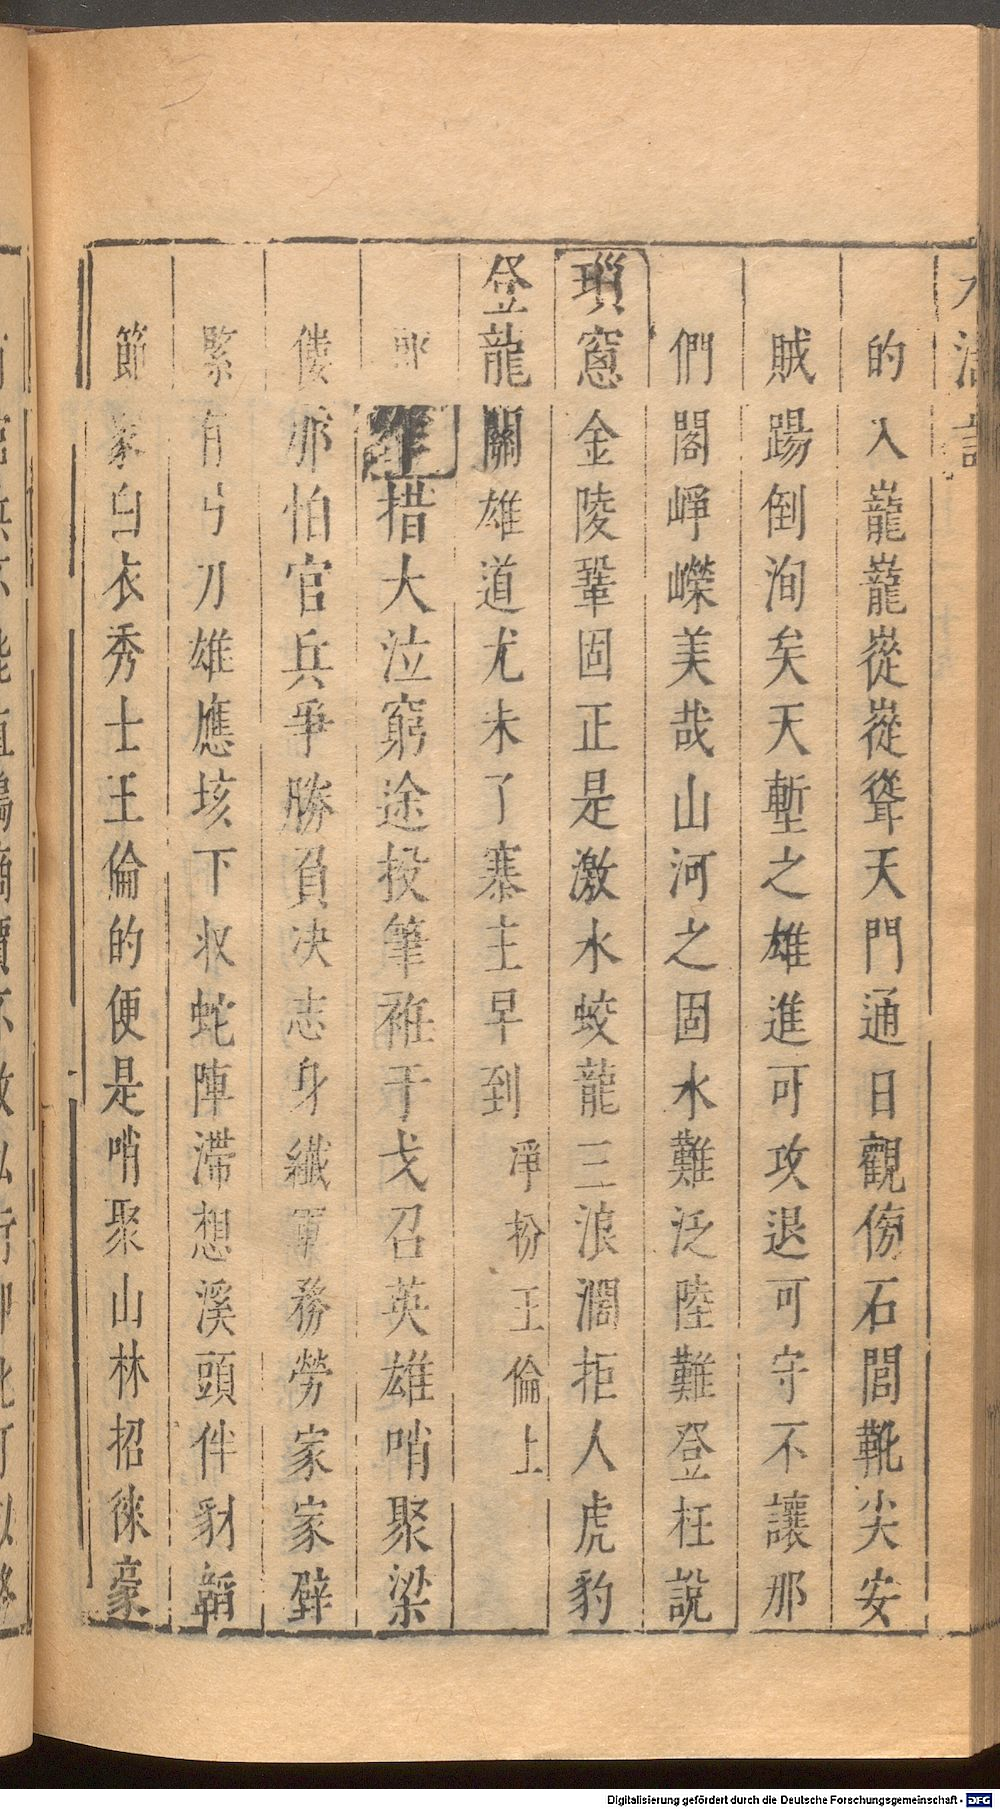 水滸記
的入巃巃嵸嵸聳天門通日觀傍石閭靴尖安
賊踢倒洵矣天塹之雄進可攻退可守不讓那
們閣崢嶸美哉山河之固水難泛陸難登枉說
瑣窻金陵鞏固正是激水蛟龍三浪濶拒人虎豹
登龍關雄道尤未了寨主早到 淨扮王倫上
措大泣窮途投筆在干戈召英雄哨聚梁
僂那怕官兵爭勝負决志身纖軍務勞家家壁
緊有弓刀雄應垓下収蛇陣滯想溪頭伴豺韜
節家白衣秀士王倫的便是哨聚山林招徠豪
Digitalisierung gefördert durch die Deutsche Forschungsgemeinschaft - DFG